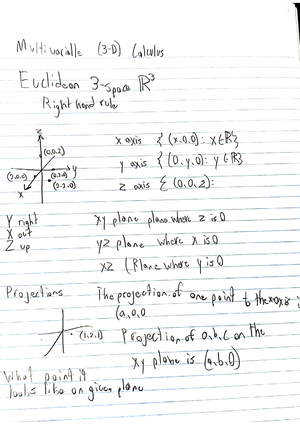 Multivariable (3-D) Calculus
Euclidean 3-space ℝ³
Right hand rule
z
(0,0,2)
y
(2,0,0)
(2,2,0)
x
x axis { (x,0,0): x∈ℝ}
y axis { (0,y,0): y∈ℝ}
z axis { (0,0,z):
Y right
X out
Z up
xy plane plane where z is 0
yz plane where x is 0
xz (Plane where y is 0
Projections
The projection of one point to the x axis is
(a,0,0
(1,2,1)
Projection of a,b,c on the
xy plane is (a,b,0)
What point it
looks like on given plane